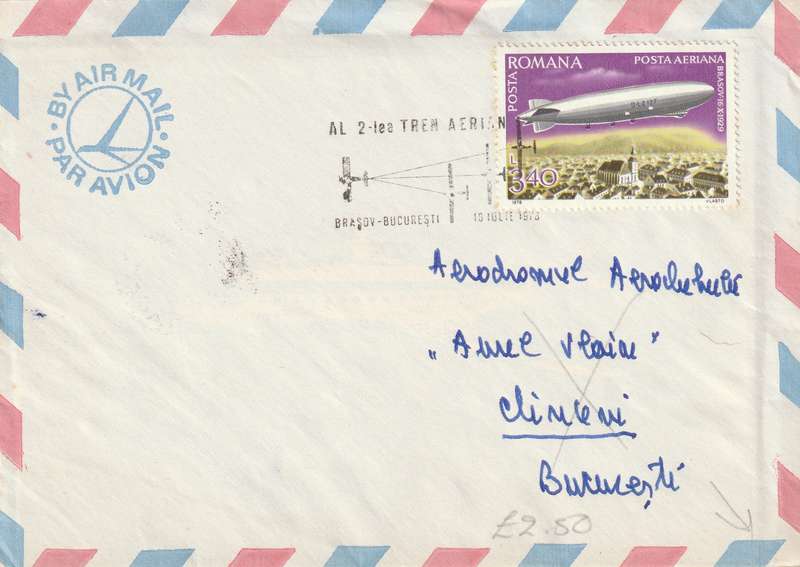 BY AIR MAIL
PAR AVION
POSTA ROMANA
POSTA AERIANA
BRASOV 16 X 1929
D-LZ127
L 3,40
1978 VLASTO
AL 2-lea TREN AERIAN
BRAȘOV-BUCUREȘTI 15 IULIE 1978
Aerodromul Aeroclubului
„Aurel Vlaicu"
Clinceni
București
£2.50